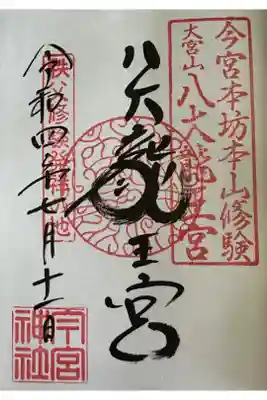 今宮本坊本山修験
大宮山八大龍王宮
八大龍王宮
秩父修験発祥之地
令和四年七月
今宮神社